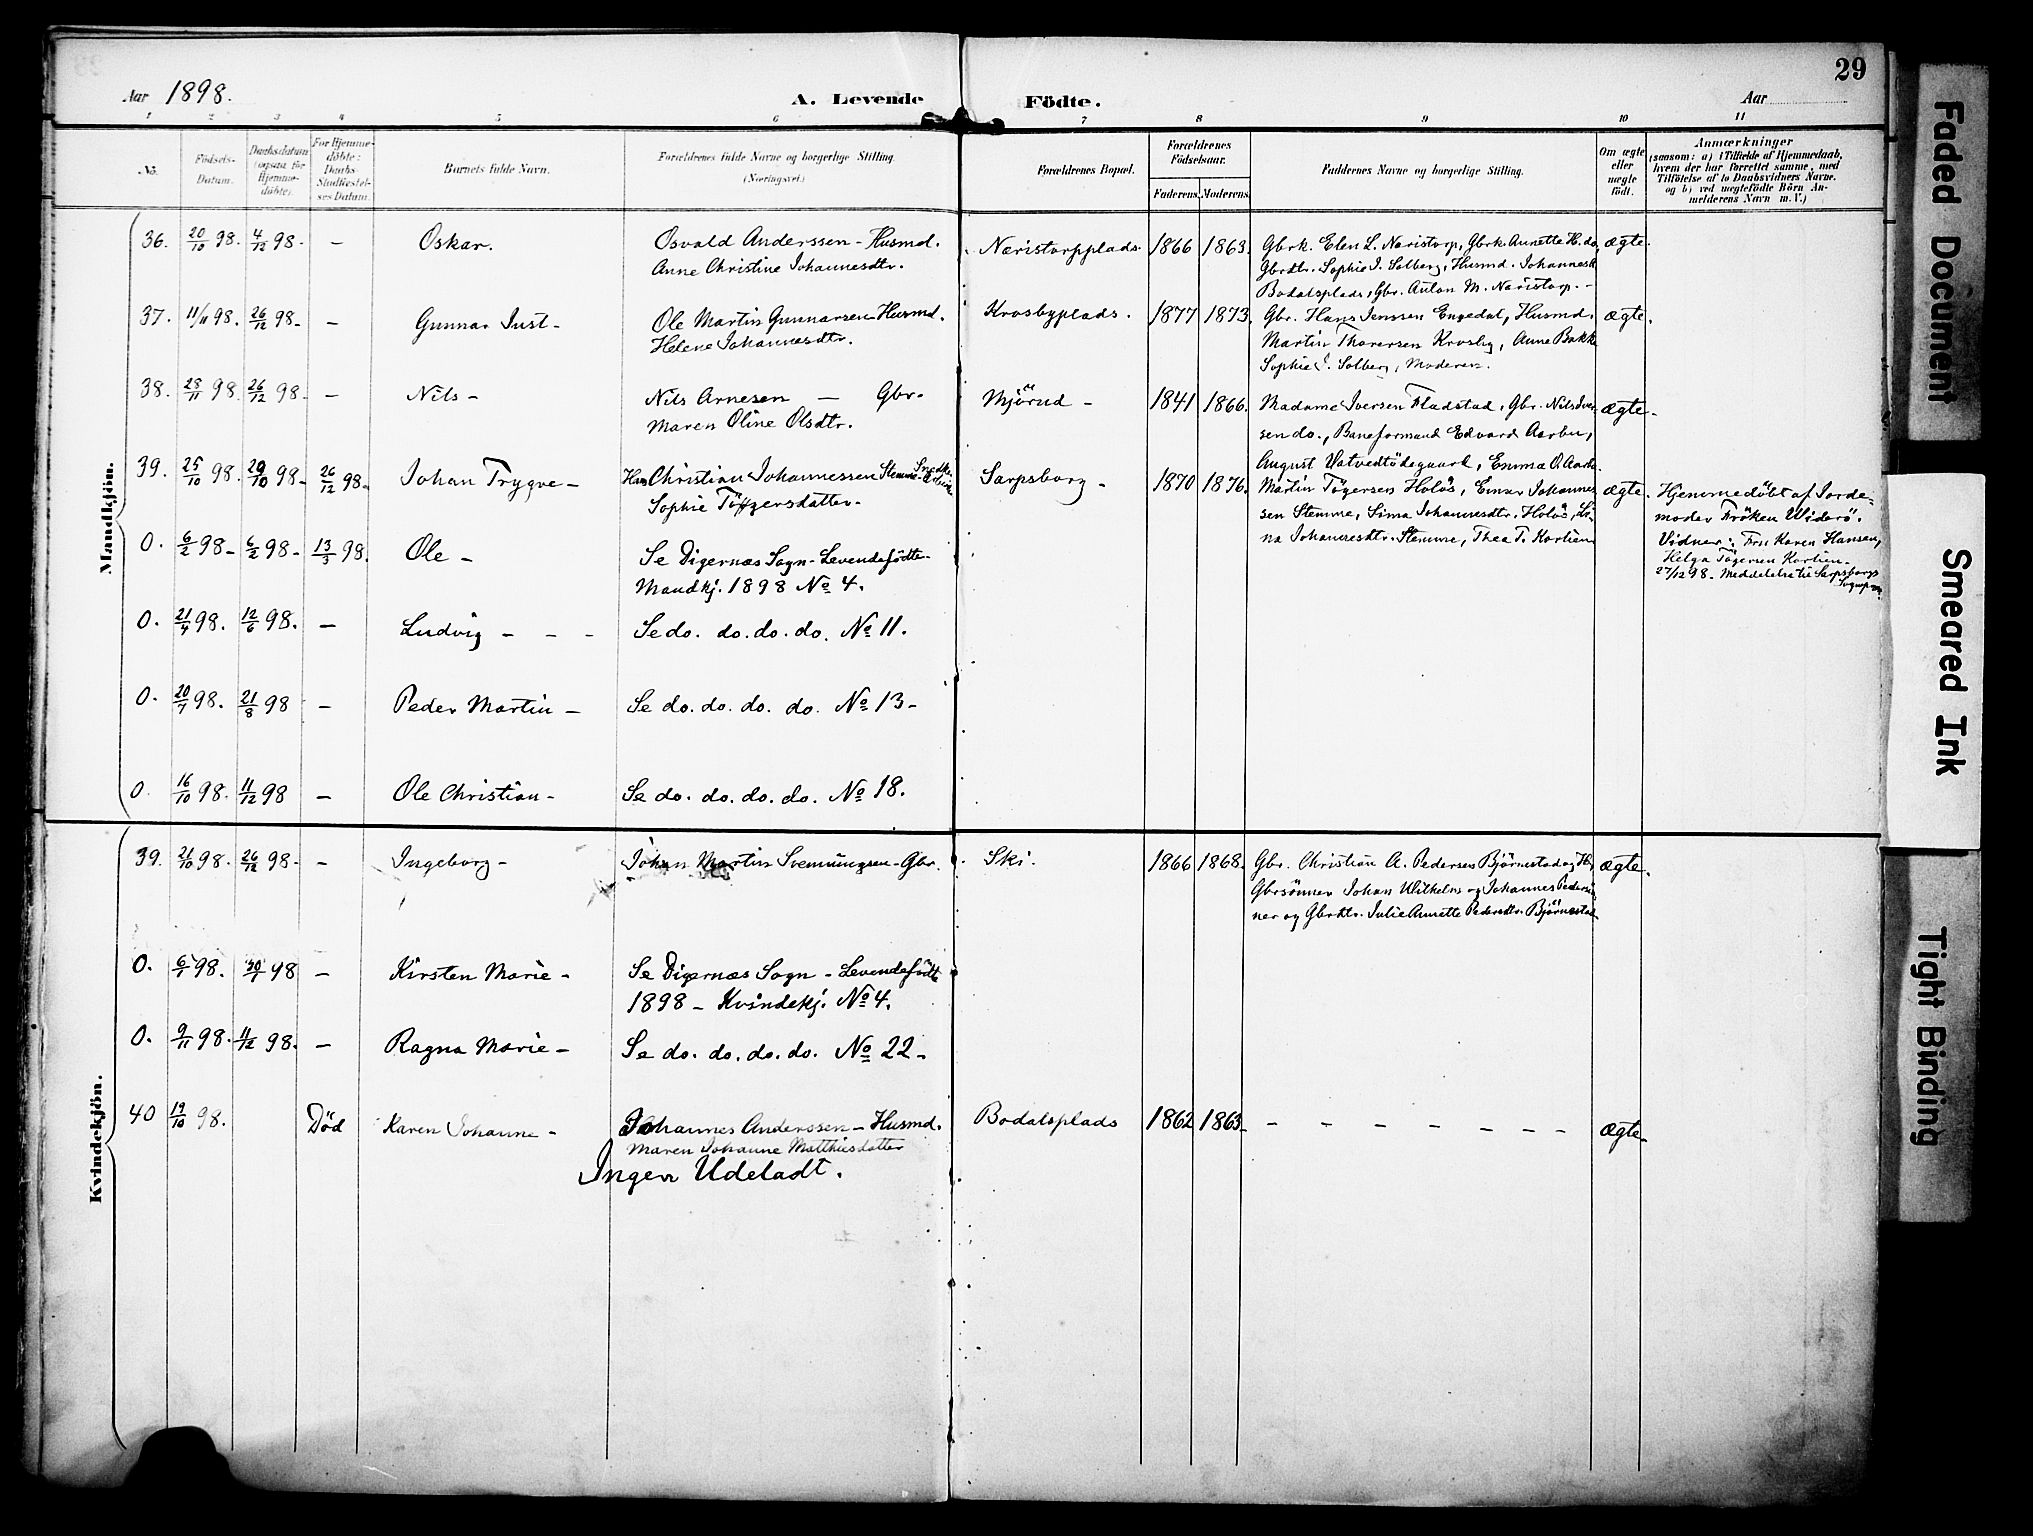 29
Aar 1898.
A. Levende Födte.
Aar
1 2 3 4 5 6 7 8 9 10 11
No.
Födsels-Datum.
Daabsdatum (ogsaa for Hjemme-döbte).
For Hjemme-döbte: Daabs-Stadfæstel-ses Datum.
Barnets fulde Navn.
Forældrenes fulde Navne og borgerlige Stilling. (Næringsvei.)
Forældrenes Bopæl.
Forældrenes Födselsaar.
Faderens. Moderens.
Faddernes Navne og borgerlige Stilling.
Om ægte eller uægte födt.
Anmærkninger
(saasom: a) i Tilfælde af Hjemmedaab,
hvem der har forrettet samme, med
Tilföielse af to Daabsvidners Navne,
og b) ved uegtefödte Börn An-
melderens Navn m. V.)
Mandkjön.
36. 20/10 98. 4/12 98. - Oskar. Osvald Anderssen - Husmd. Næristorpplads. 1866 1863. Gbrk. Elen L. Næristorp, Gbrk. Annette H. do, ægte.
Anne Christine Johannesdtr. Gbrdtr. Sophie J. Solberg, Husmd. Johannes
Bodalsplads, Gbr. Anton M. Næristorp. -
37. 11/11 98. 26/12 98. - Gunnar Just - Ole Martin Gunnarsen - Husmd. Krosbyplads. 1877 1873. Gbr. Hans Jenssen Engedal, Husmd. ægte.
Helene Johannesdtr. Martin Thoresen Krosby, Anne Bakke
Sophie J. Solberg, Moderen.
38. 28/11 98. 26/12 98. - Nils - Nils Arnesen - Gbr. Mjörud - 1841 1866. Madame Iversen Fladstad, Gbr. Nils Iver- ægte.
Maren Oline Olsdtr. sen do., Baneformand Edvard Aarbu,
August Vatvedtödegaard, Emma O. Aarbu.
39. 25/10 98. 29/10 98. 26/12 98. Johan Trygve - Hans Christian Johannessen Stemme - Sarpsborg - 1870 1876. Martin Tögersen Holös, Einar Johannes- ægte. Hjemmedöbt af Jorde-
Sophie Tögersdatter. sen Stemme, Sina Johannesdtr. Holös, Li- moder Fröken Widerö.
na Johannesdtr. Stemme, Thea T. Kortien Vidner: Fru Karen Hansen,
Helga Tögersen Kortien.
27/12 98. Meddelelse til Sarpsborgs
Sognepr.
0. 6/2 98. 6/2 98. 13/3 98. Ole - Se Digernæs Sogn - Levendefödte -
Mandkj. 1898 No 4.
0. 21/4 98. 12/6 98. - Ludvig - - - Se do. do. do. do. No 11.
0. 20/7 98. 21/8 98 - Peder Martin - Se do. do. do. do. No 13 -
0. 16/10 98. 11/12 98 - Ole Christian - Se do. do. do. do. No 18.
Kvindekjön.
39. 21/10 98. 26/12 98. - Ingeborg - Johan Martin Svenningsen - Gbr. Ski. 1866 1868. Gbr. Christian A. Pedersen Björnestad og H., ægte.
Gbrsönner Johan Wilhelm og Johannes Peders-
ner og Gbrdtr. Julie Annette Pedersdtr. Björnestad
0. 6/1 98. 30/1 98 - Kirsten Marie - Se Digernæs Sogn - Levendefödte
1898 - Kvindekj. No 4.
0. 9/11 98. 11/12 98. - Ragna Marie - Se do. do. do. do. No 22 -
40 19/10 98. Död Karen Johanne - Johannes Anderssen - Husmd. Bodalsplads 1862 1863 - - - - - - - ægte.
Maren Johanne Matthiesdatter
Ingen Udeladt.
Faded Document
Smeared Ink
Tight Binding